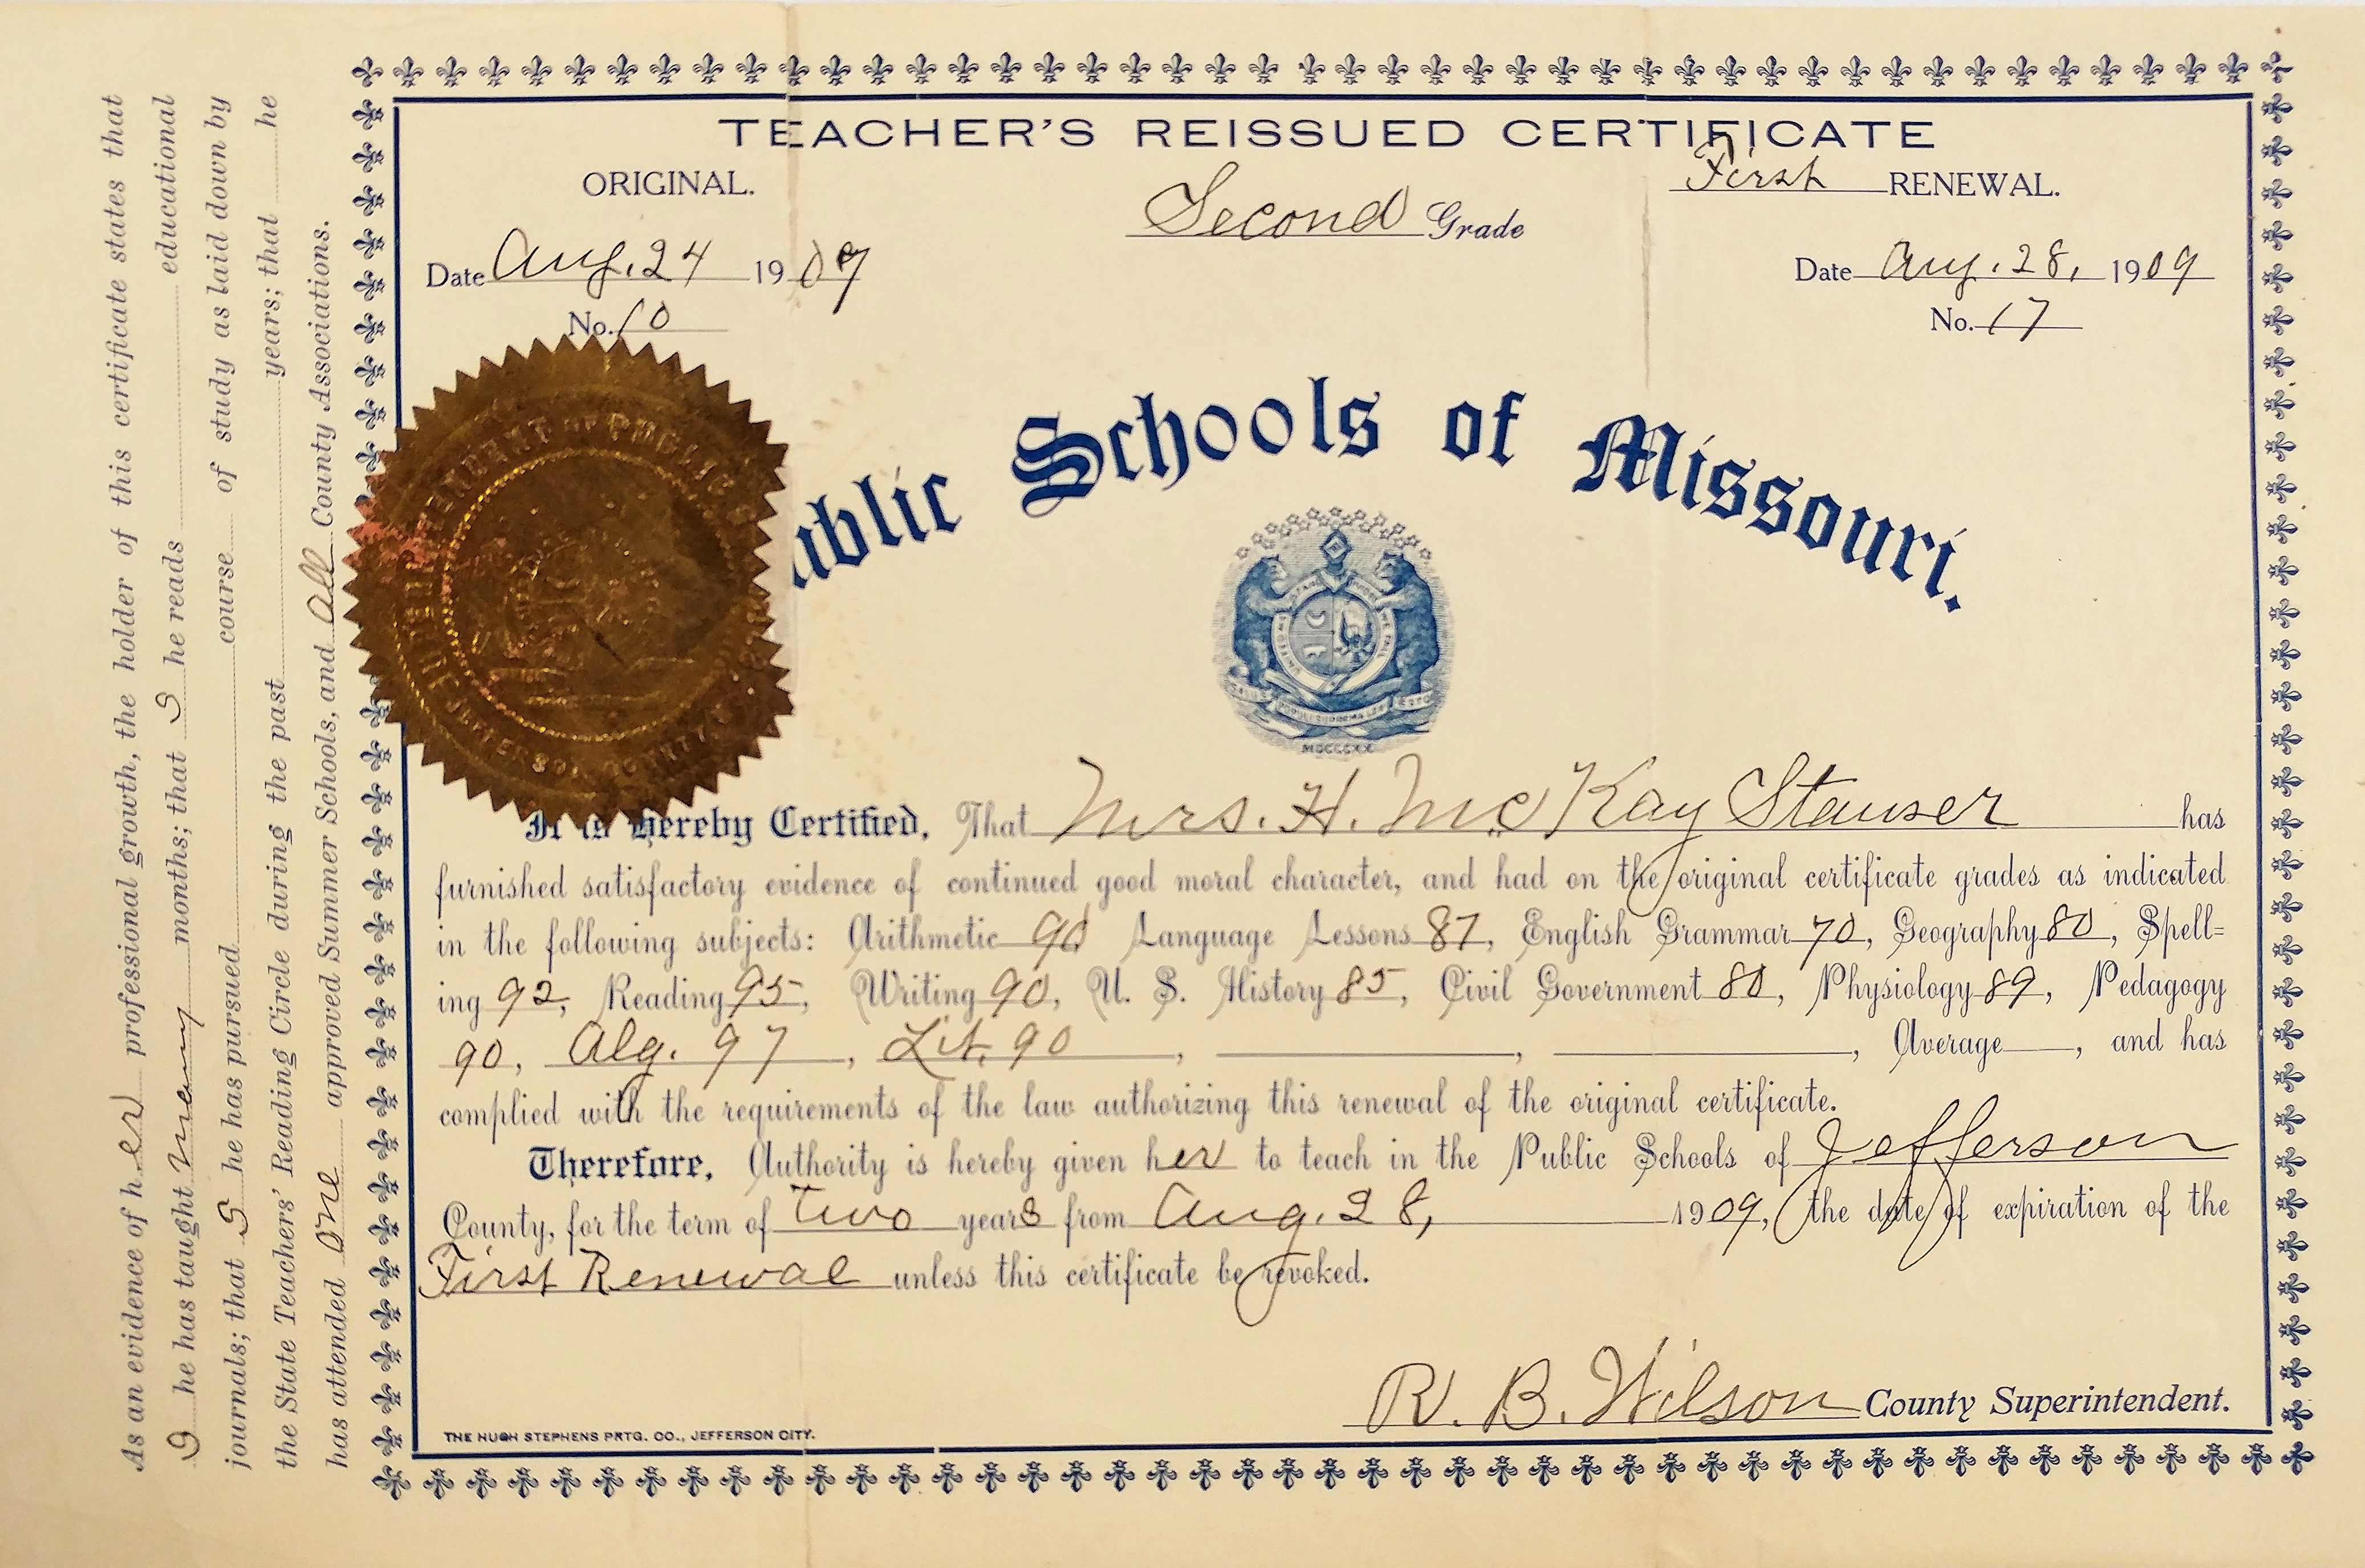 TEACHER'S REISSUED CERTIFICATE
ORIGINAL.
Second Grade
First RENEWAL.
Date Aug. 24 1907
Date Aug. 28, 1909
No. 10
No. 17
Public Schools of Missouri.
MDCCCXX
It is hereby Certified, That Mrs. H. McKay Stauser has
furnished satisfactory evidence of continued good moral character, and had on the original certificate grades as indicated
in the following subjects: Arithmetic 90 Language Lessons 87, English Grammar 70, Geography 80, Spell=
ing 92, Reading 95, Writing 90, U. S. History 85, Civil Government 80, Physiology 89, Pedagogy
90, Alg. 97, Lit. 90, , , Average , and has
complied with the requirements of the law authorizing this renewal of the original certificate.
Therefore, Authority is hereby given her to teach in the Public Schools of Jefferson
County, for the term of two years from Aug. 28, 1909, the date of expiration of the
First Renewal unless this certificate be revoked.
R. B. Wilson County Superintendent.
THE HUGH STEPHENS PRTG. CO., JEFFERSON CITY.
As an evidence of her professional growth, the holder of this certificate states that
S he has taught many months; that S he reads educational
journals; that S he has pursued course of study as laid down by
the State Teachers' Reading Circle during the past years; that he
has attended one approved Summer Schools, and all County Associations.